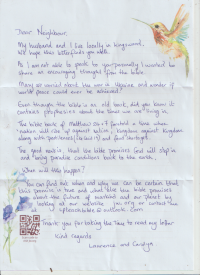 Dear Neighbour,
My husband and I live locally in
We hope this letter finds you well.
As I am not able to speak to you personally I wanted to
share an encouraging thought from the Bible.
Many are worried about the war in Ukraine and wonder if
world peace could ever be achieved.
Even though the Bible is an old book, did you know it
contains prophecies about the times we are living in.
The bible book of Matthew 24:7 foretold a time when
"nation will rise up against nation, kingdom against kingdom
along with
The good news is, that the bible promises God will step in
and bring paradise conditions back to the earth.
When will this happen?
You can find out when and why we can be certain that
this promise is true and what else the bible promises
about the future of mankind and our planet by
looking at our website jw.org or contact me
@outlook.com
Thank you for taking the time to read my letter
Kind regards
Lawrence and Carolyn